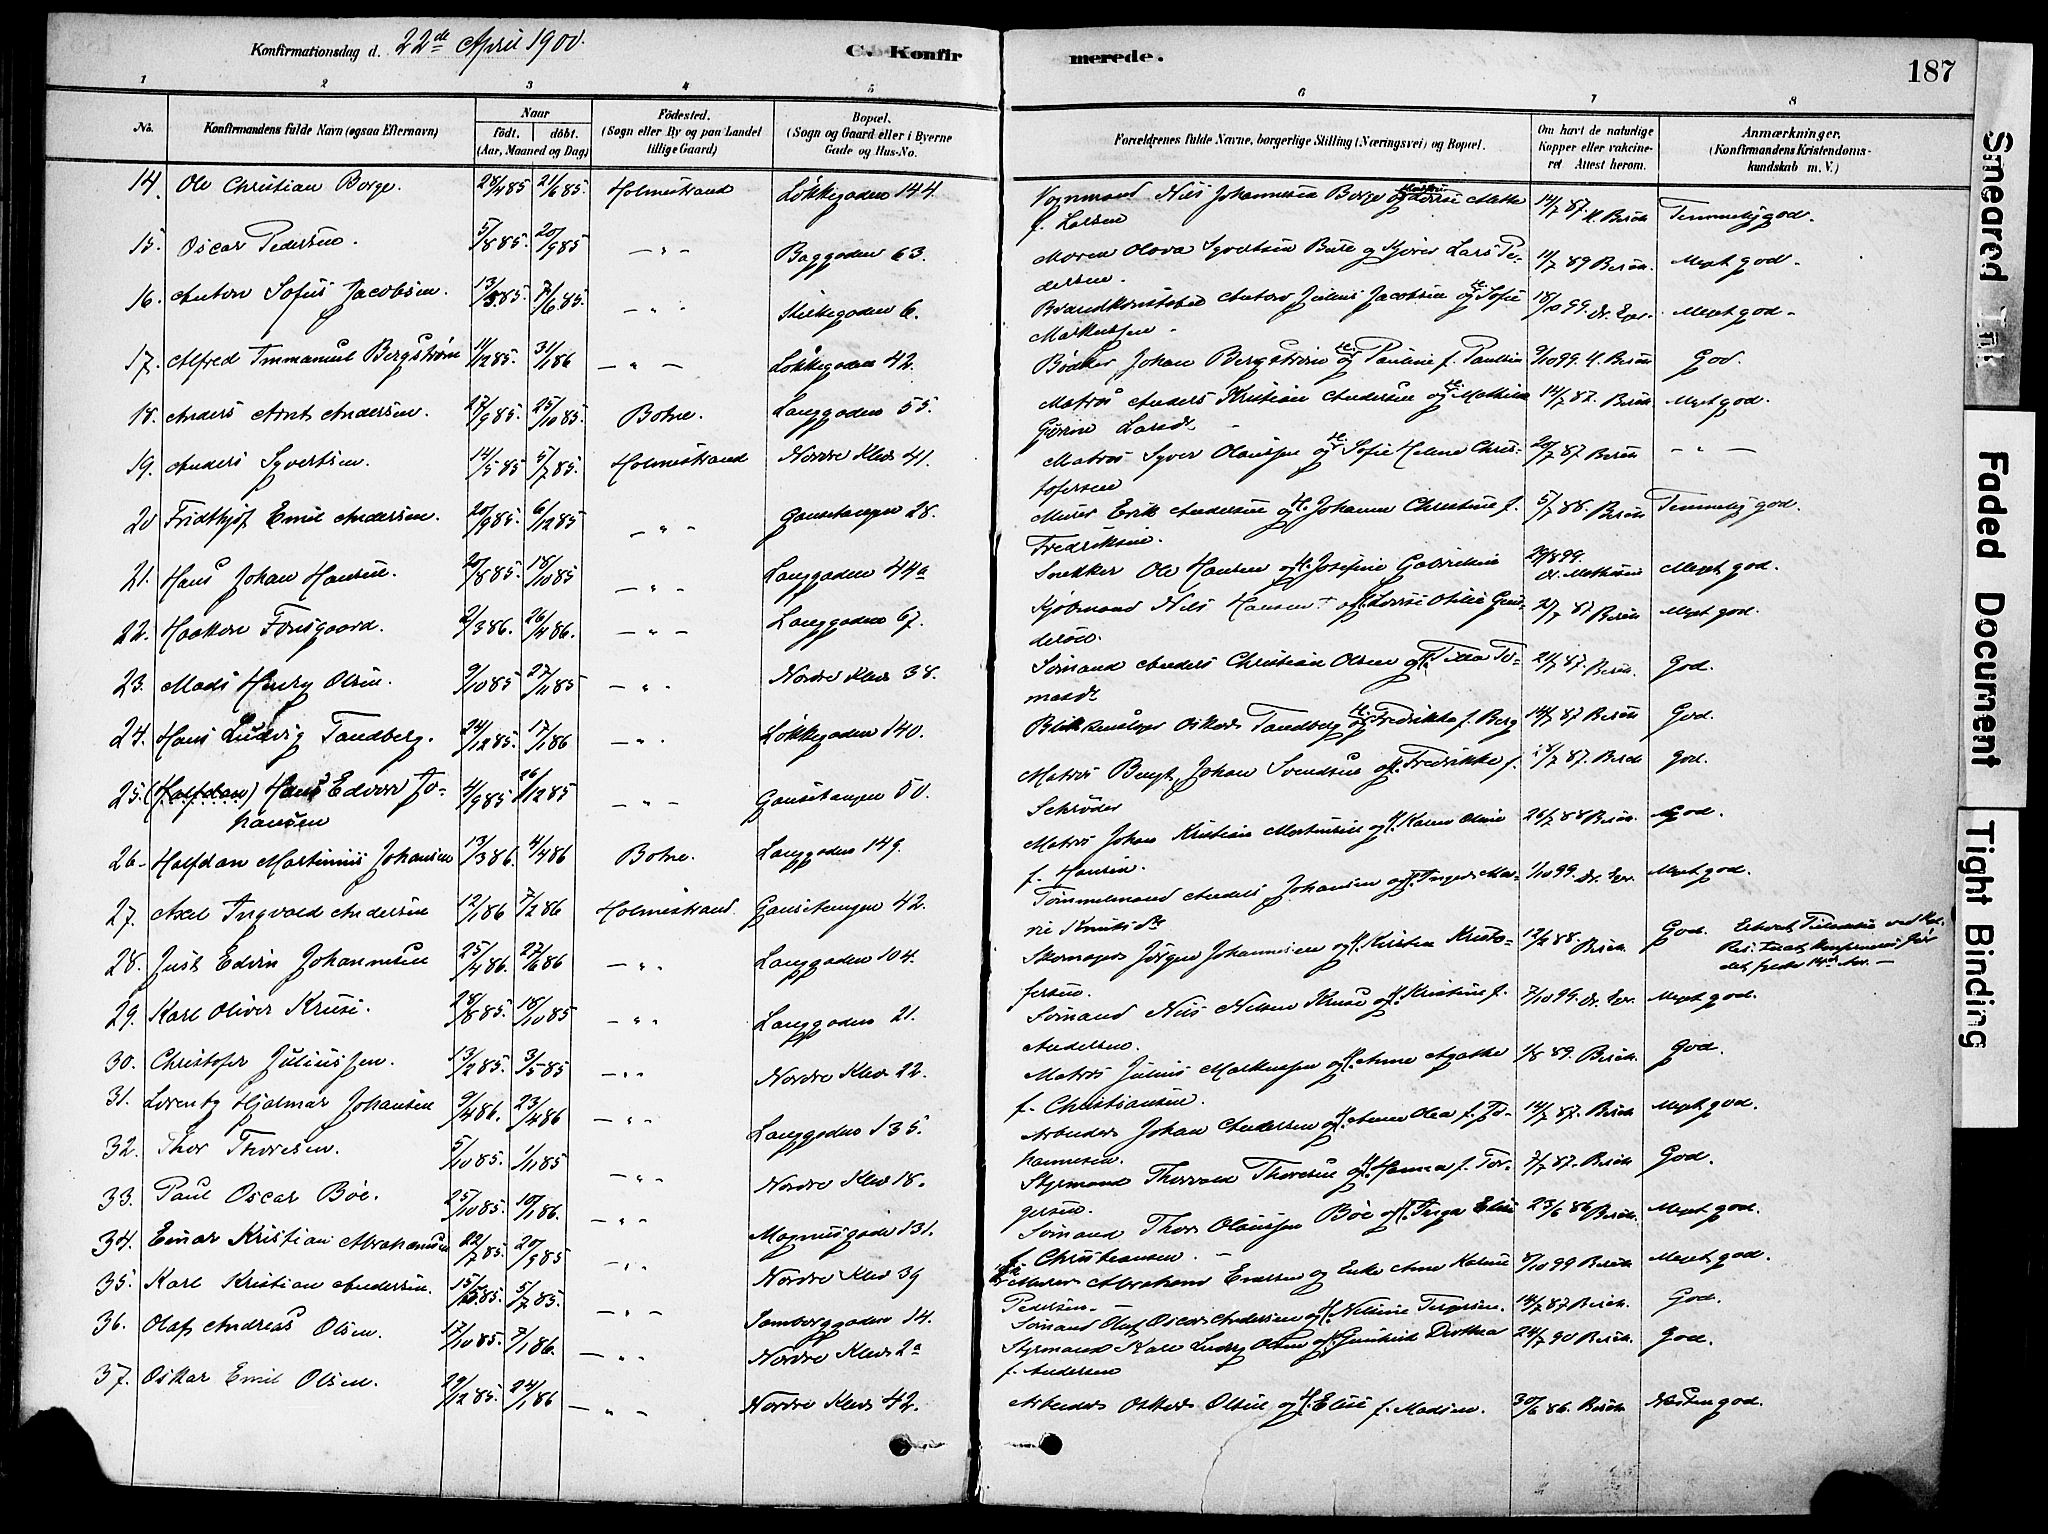 Konfirmationsdag d. 22de April 1900. C. Konfirmerede. 187
1 2 3 4 5 6 7 8
No. Konfirmandens fulde Navn (ogsaa Efternavn) Naar født. døbt. (Aar, Maaned og Dag) Fødested. (Sogn eller By og paa Landet tillige Gaard) Bopæl. (Sogn og Gaard eller i Byerne Gade og Hus-No. Forældrenes fulde Navne, borgerlige Stilling (Næringsvei) og Bopæl. Om havt de naturlige Kopper eller vakcineret Attest herom. Anmærkninger, (Konfirmandens Kristendomskundskab m. V.)
14. Ole Christian Borge. 28/4 85 21/6 85. Holmestrand Løkkegaden 144. Vognmand Nils Johannesen Borge og Mette f. Larsen 14/7 87. Temmelig god.
15. Oscar Pedersen. 5/8 85. 20/9 85 — " — Baggaden 63. Maren Olova Syvertsen og Lars Pedersen. 11/7 89 Meget god.
16. Anton Sofus Jacobsen. 13/3 85 7/6 85. " Kirkegaden 6. Brandkonstabel Anton Julius Jacobsen og Sofie Markussen 99. Meget god.
17. Alfred Immanuel Bergstrøm 11/12 85. 31/1 86 — " — Løkkegaden 42. Bødker Johan Bergstrøm og H. Pauline f. Paulsen 9/10 99. God.
18. Anders Arnt Andersen. 27/9 85. 25/10 85. Botne. Langgaden 55. Matros Anders Kristian Andersen og H. Mathea Larsdt. 14/7 87. Meget god.
19. Anders Syvertsen. 14/5 85 5/7 85. Holmestrand Nordre Klev 41. Matros Syver Olaussen og H. Sofie Helene Christofersen 20/7 87. — " —
20 Fridthjof Emil Andersen. 20/9 85. 6/12 85 — " — Gausetangen 28. Murer Erik Andersen og H. Johanne Christine f. Fredriksen. 5/7 88. Temmelig god.
21. Hans Johan Hansen. 20/8 85. 18/10 85 — " — Langgaden 44a Snekker Ole Hansen og H. Josefine Gabrielsen 29/8 99. Dr. Mathisen Meget god.
22. Haakon Fonsgaard. 2/3 86. 26/4 86. — " — Langgaden 67. Kjøbmand Nils Hansen og H. Lovise Otilie Gundersen. 2/7 87 Meget god.
23. Mads Henry Olsen. 9/10 85 27/11 85 — " — Nordre Klev 38. Sømand Anders Christian Olsen og H. Tilla Tomasdt. 21/7 87. God.
24. Hans Ludvig Tandberg. 24/12 85. 17/1 86 — " — Løkkegaden 140. Blikkenslager Oskar Tandberg og H. Fredrikke f. Berg 14/7 87 God.
25. (Halfdan) Hans Edvin Johansen 4/9 85 26/12 85 — " — Gausetangen 50. Matros Bengt Johan Svendsen og H. Fredrikke f. Schrøder 7 87. God.
26. Halfdan Martinius Johansen 17/3 86. 4/4 86 Botne. Langgaden 149. Matros Johan Kristian Martinsen og H. Karen Oline f. Hansen. 26/7 88 God.
27. Axel Ingvald Andersen 12/1 86 7/2 86 Holmestrand. Gausetangen 42. Tømmermand Anders Johansen og H. Inger Marie Knutsdt. 1/10 99. Meget god.
28. Just Edvin Johannesen 25/4 86. 27/6 86 — " — Langgaden 104. Skomager Jørgen Johannesen og H. Kirsten Kristofersen. 12/7 88. God. Erholdt Tilladelse ved
29. Karl Oliver Kruse. 28/8 85. 18/10 85 — " — Langgaden 21. Sømand Nils Nilsen Kruse og H. Kristine f. Andersen. 7/10 99. Meget god.
30. Christofer Juliussen. 13/2 85. 3/5 85 — " — Nordre Klev 22. Matros Julius Markussen og H. Anne Agathe f. Christiansen. 1/8 89. God.
31. Lorentz Hjalmar Johansen 9/4 86. 23/4 86 — " — Langgaden 135. Arbeider Johan Andersen og H. Anne Olea f. Johannesen. 14/7 87. Meget god.
32. Thor Thoresen. 5/10 85. 1/11 85 — " — Nordre Klev 18. Styrmand Thorvald Thoresen og H. Hanna f. Torgersen. 7/7 87. God.
33. Paul Oscar Bøe. 25/10 85. 10/1 86. — " — Magnusgade 131. Sømand Thor Olaussen Bøe og H. Inga Elise f. Christiansen. 23/6 86 Meget god.
34. Einar Kristian Abrahamsen 22/7 85. 20/9 85 " Nordre Klev 39 Murer Abraham Enersen og Enke Anne Kaline Pedersen. 8/10 99 Meget god.
35. Karl Kristian Andersen. 15/5 85. 5/7 85. — " — Sambergaden 14. Sømand Olaf Oscar Andersen og H. Nilsine Torgersen. 14/7 87 God.
36. Olaf Andreas Olsen. 17/10 85. 7/1 86. — " — Nordre Klev 2a Styrmand Karl Ludvig Olsen og H. Gunhild Dorthea f. Andersen 24/7 90 God.
37. Oskar Emil Olsen. 29/12 85. 24/1 86 — " — Nordre Klev 42. Arbeider Oskar Olsen og H. Elise f. Madsen. 30/6 86. Næsten god.
Smeared Ink
Faded Document
Tight Binding